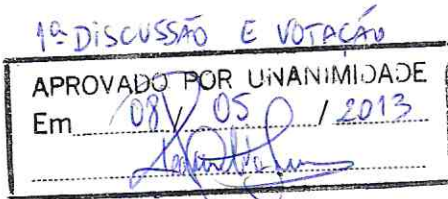 1ª DISCUSSÃO E VOTAÇÃO
APROVADO POR UNANIMIDADE
Em 08 / 05 / 2013